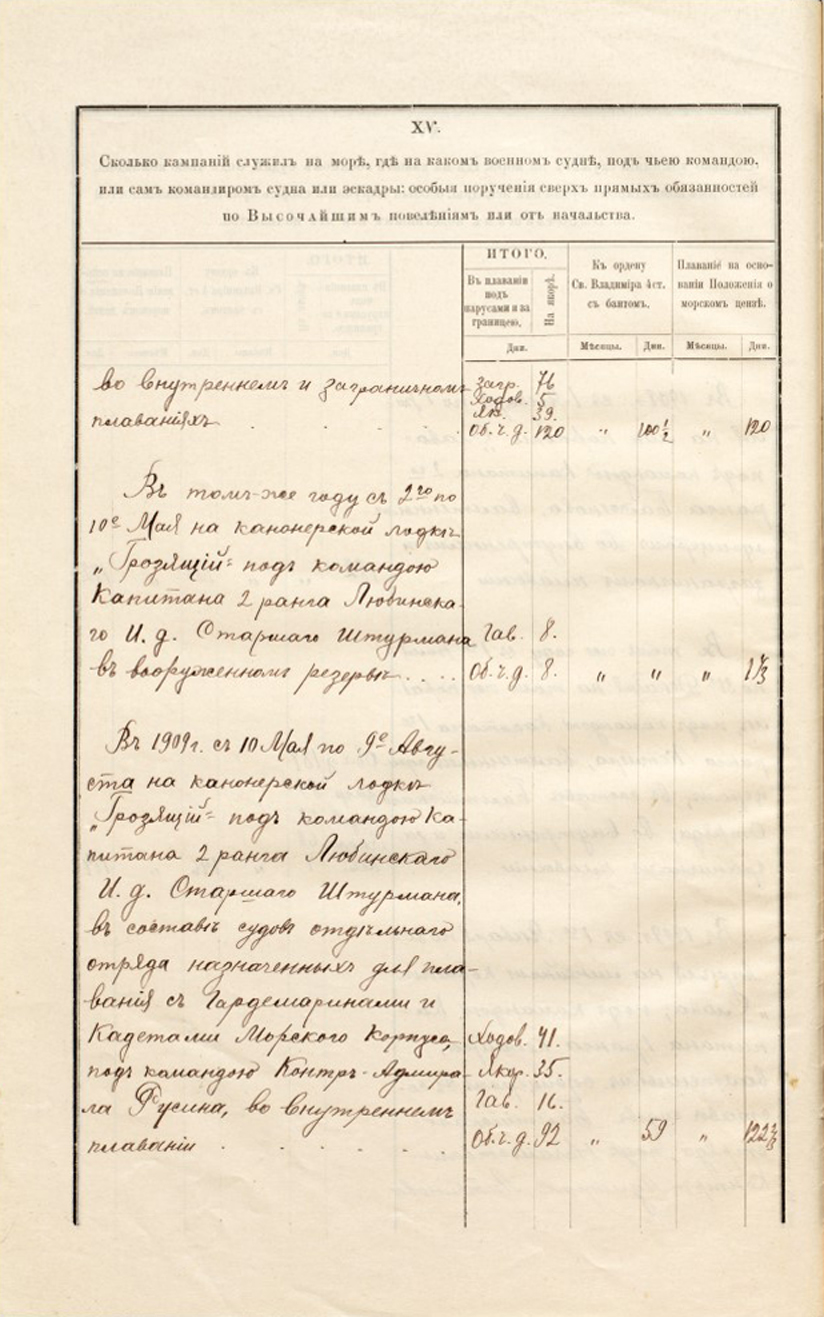 XV.
Сколько кампаній служилъ на морѣ, гдѣ на какомъ военномъ суднѣ, подъ чьею командою,
или самъ командиромъ судна или эскадры: особыя порученія сверхъ прямыхъ обязанностей
по Высочайшимъ повелѣніямъ или отъ начальства.
ИТОГО.
Въ плаваніи
подъ
парусами и за
границею.
На якорѣ.
Къ ордену
Св. Владиміра 4 ст.
съ бантомъ.
Плаваніе на осно-
ваніи Положенія о
морскомъ цензѣ.
Дни.
Мѣсяцы.
Дни.
Мѣсяцы.
Дни.
во внутреннемъ и заграничномъ загр. 76
Ходов. 5
Як. 39.
плаваніяхъ . . . . . Об. ч. д. 120 „ 100½ „ 120
Въ томъ-же году съ 2го по
10е Мая на канонерской лодкѣ
„Грозящій“ подъ командою
Капитана 2 ранга Любинска-
го И. д. Старшаго Штурмана Гав. 8.
въ вооруженномъ резервѣ . . . . Об. ч. д. 8. „ „ „
Въ 1909 г. съ 10 Мая по 9е Авгу-
ста на канонерской лодкѣ
„Грозящій“ подъ командою Ка-
питана 2 ранга Любинскаго
И. д. Старшаго Штурмана,
въ составѣ судовъ отдѣльнаго
отряда назначенныхъ для пла-
ванія съ Гардемаринами и
Кадетами Морского Корпуса, Ходов. 41.
подъ командою Контръ-Адмира- Якор. 35.
ла Русина, во внутреннемъ Гав. 16.
плаваніи . . . . . Об. ч. д. 92 „ 59 „